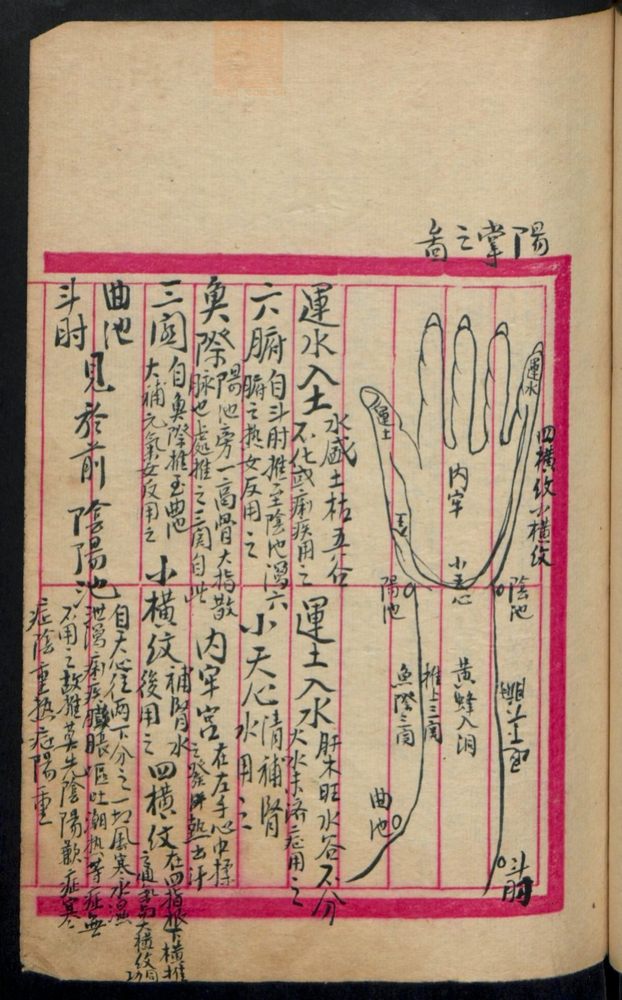 陽掌之圖
四橫紋小橫紋
運水
運土
內牢
小天心
陰池
陽池
黃蜂入洞
推上三関
魚際三関
曲池
斗肘
運水入土 水盛土枯五谷
不化或痢疾用之
運土入水 肝木旺水谷不分
大水未济症用之
六腑 自斗肘推至陰池瀉六
腑之热女反用之
小天心 清補腎
水用之
魚際 陽池旁一高骨大指散
脉也處推之三関自此
內牢宮 在左手心中揉
之發汗熱去汗
三関 自魚際推至曲池
大補元氣女反用之
小橫紋 補腎水
後用之
四橫紋 在四指根下橫推
曲池
斗肘 見於前
陰陽池 自天心往两下分之一切風寒水濕
泄瀉痢疾臌脹嘔吐潮热等症無
不用之故推莫失陰陽歎症寒
症陰重热症陽重